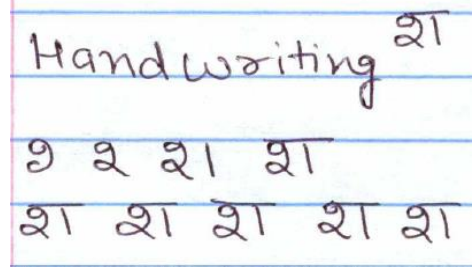 Handwriting श
श
श श श श श